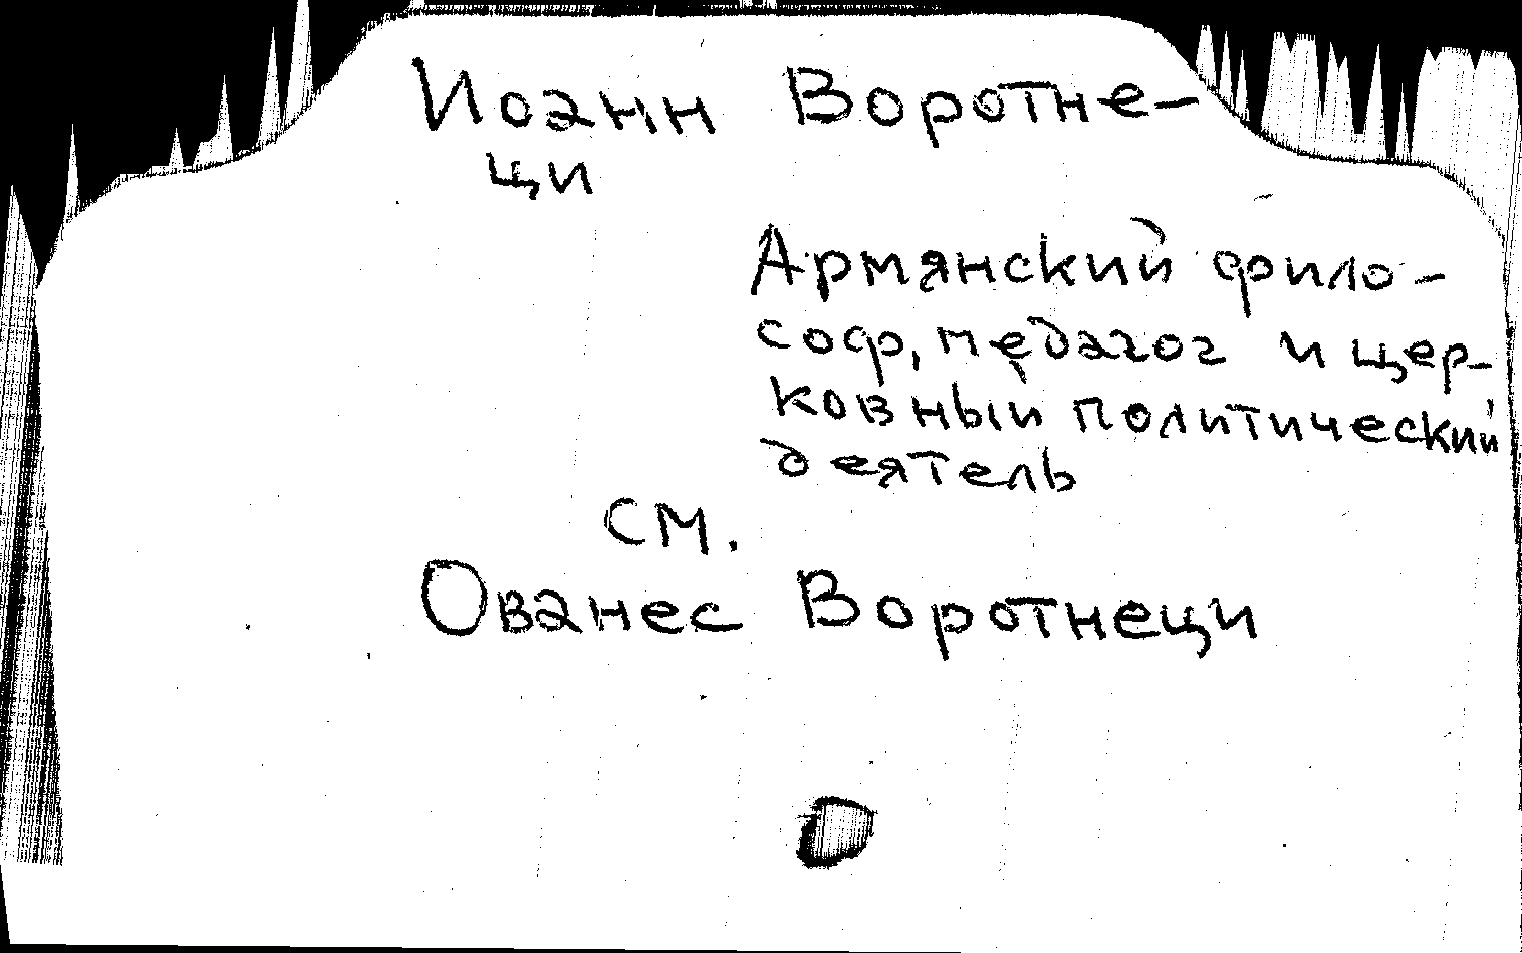 Иоанн Воротне-
ци
Армянский фило-
соф, педагог и цер-
ковный политический
деятель
см.
Ованес Воротнеци